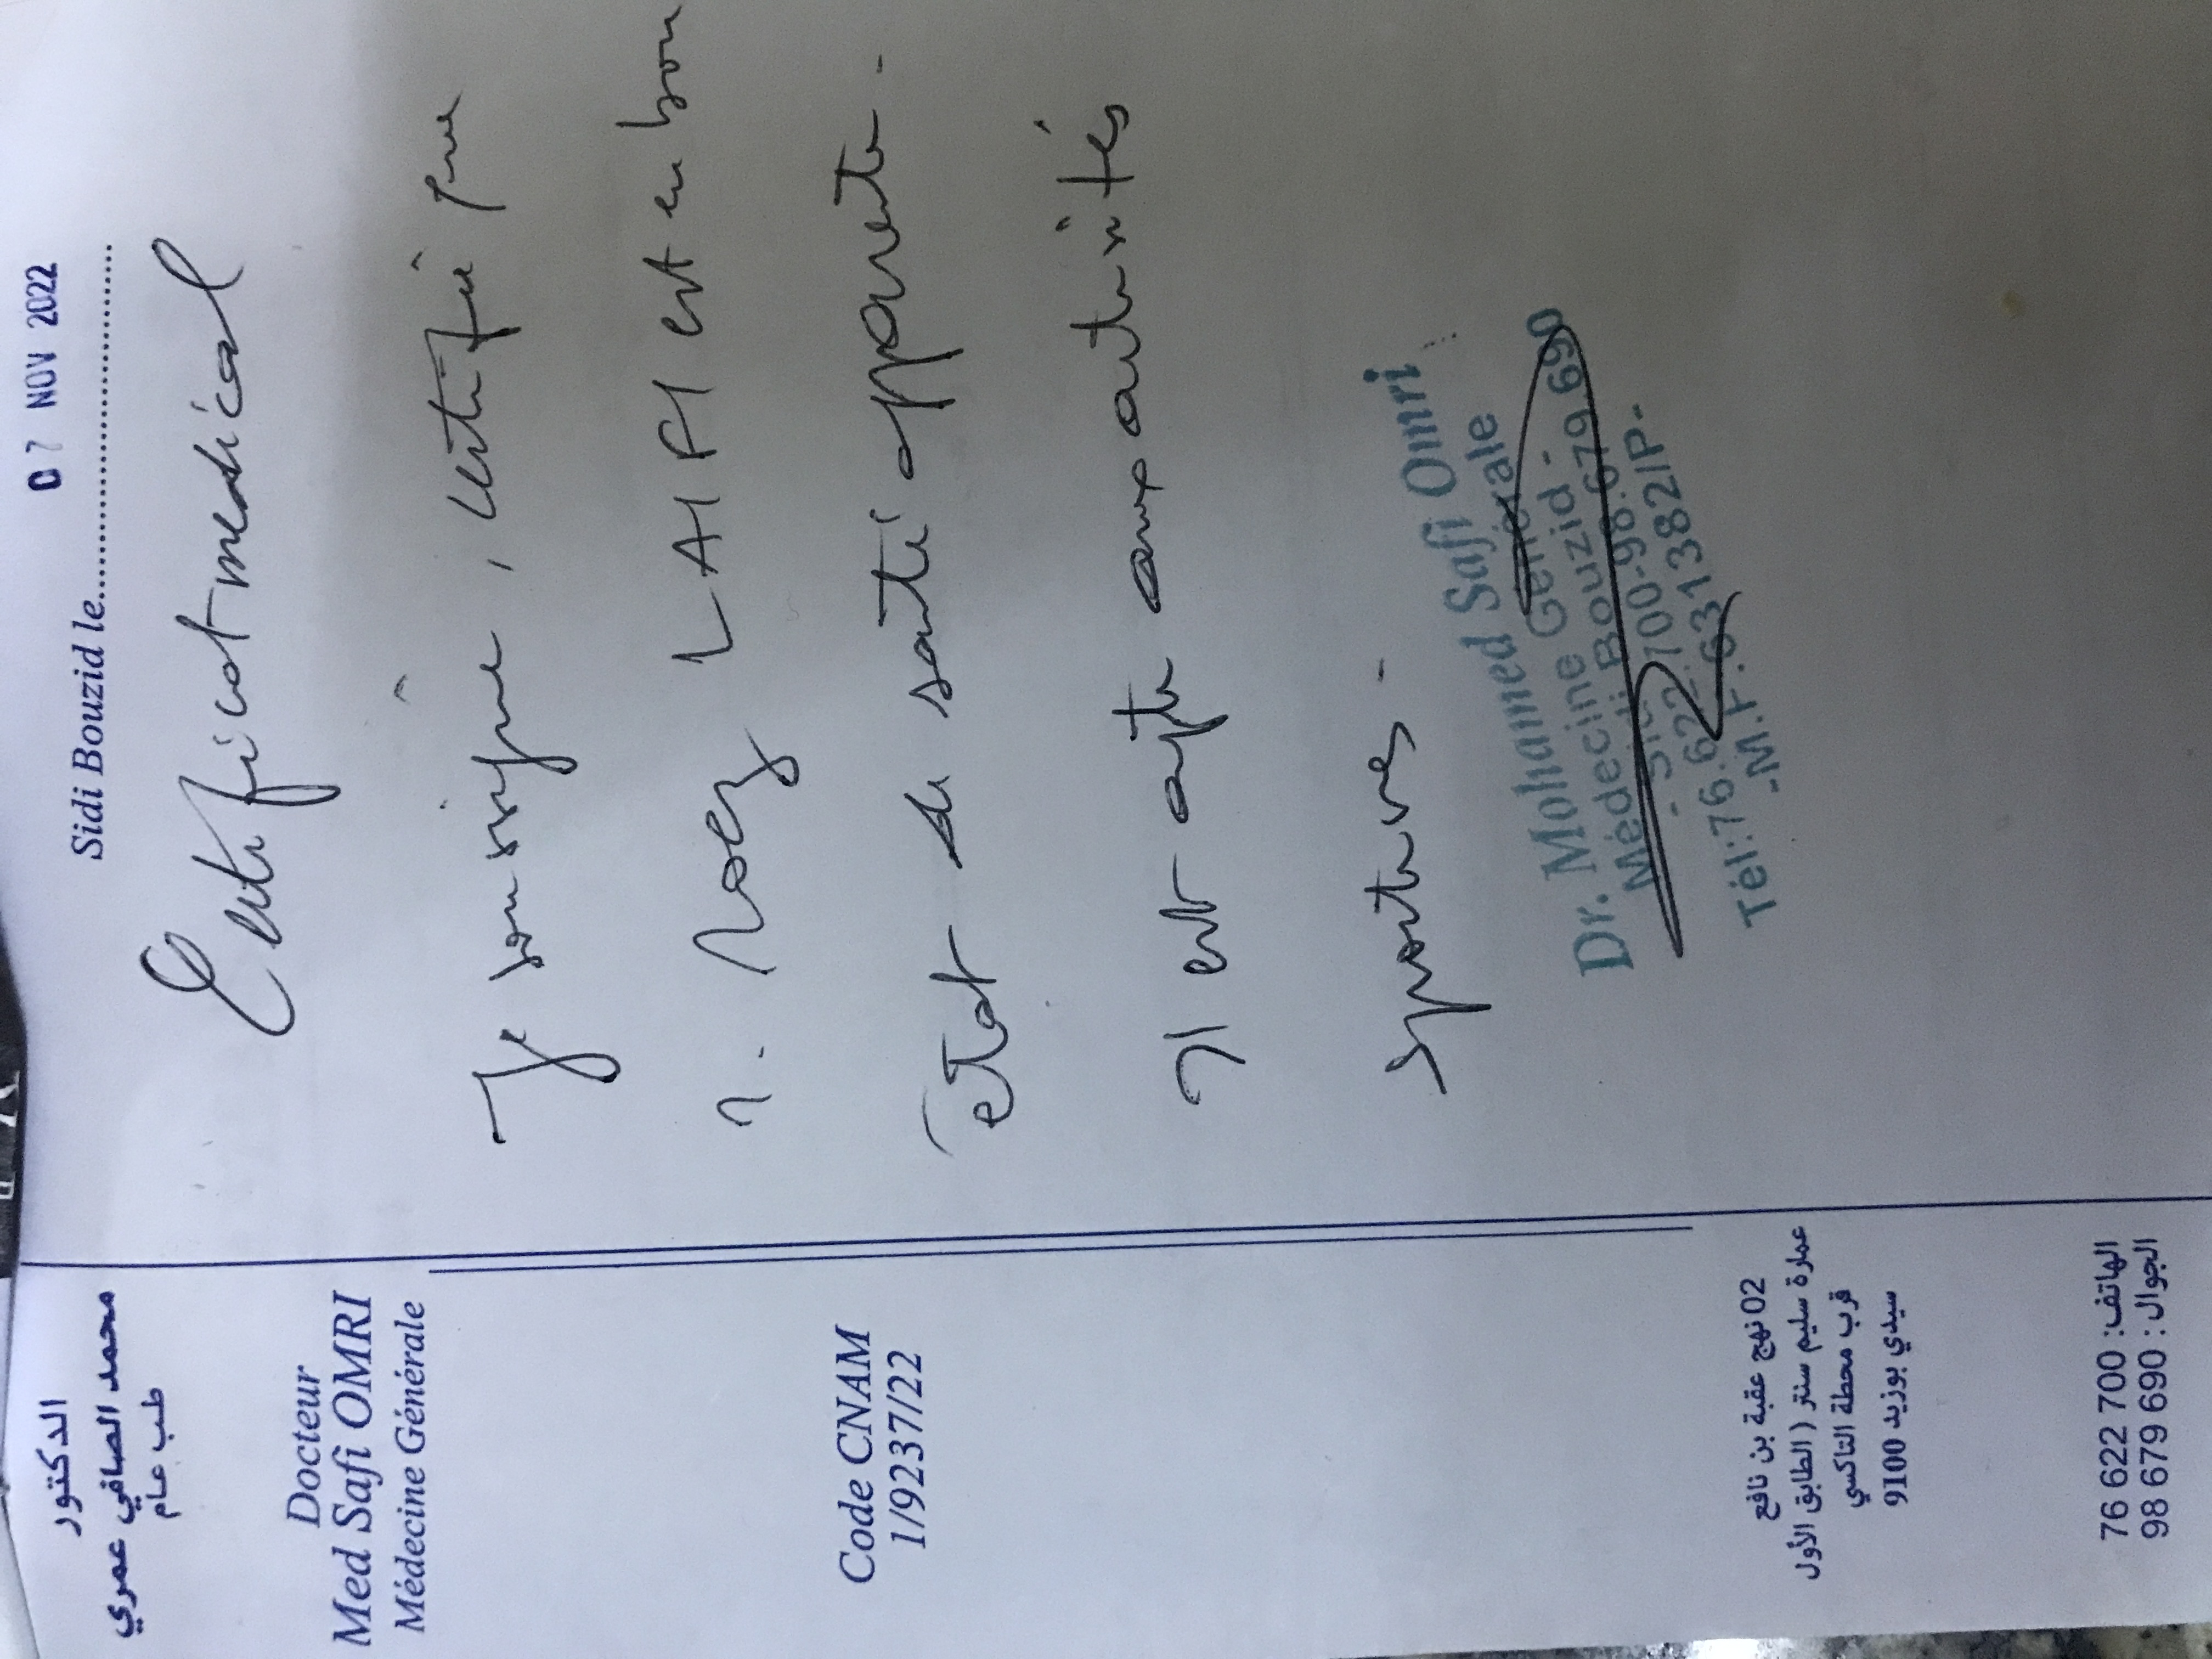 الدكتور
محمد الصافي عمري
طب عام
Docteur
Med Safi OMRI
Médecine Générale
Code CNAM
1/9237/22
02 نهج عقبة بن نافع
عمارة سليم سنتر ( الطابق الأول
قرب محطة التاكسي
سيدي بوزيد 9100
الهاتف: 76 622 700
الجوال : 98 679 690
Sidi Bouzid le
07 NOV 2022
Certificat medical
Je soussigné, certifié que
LAIFI est en bon
état de santé apparente.
Il est apte aux activités
sportives.
Dr. Mohamed Safi Omri
Médecine Générale
- Sidi Bouzid -
Tél:76.622.700-98.679.690
-M.F:631382/P-